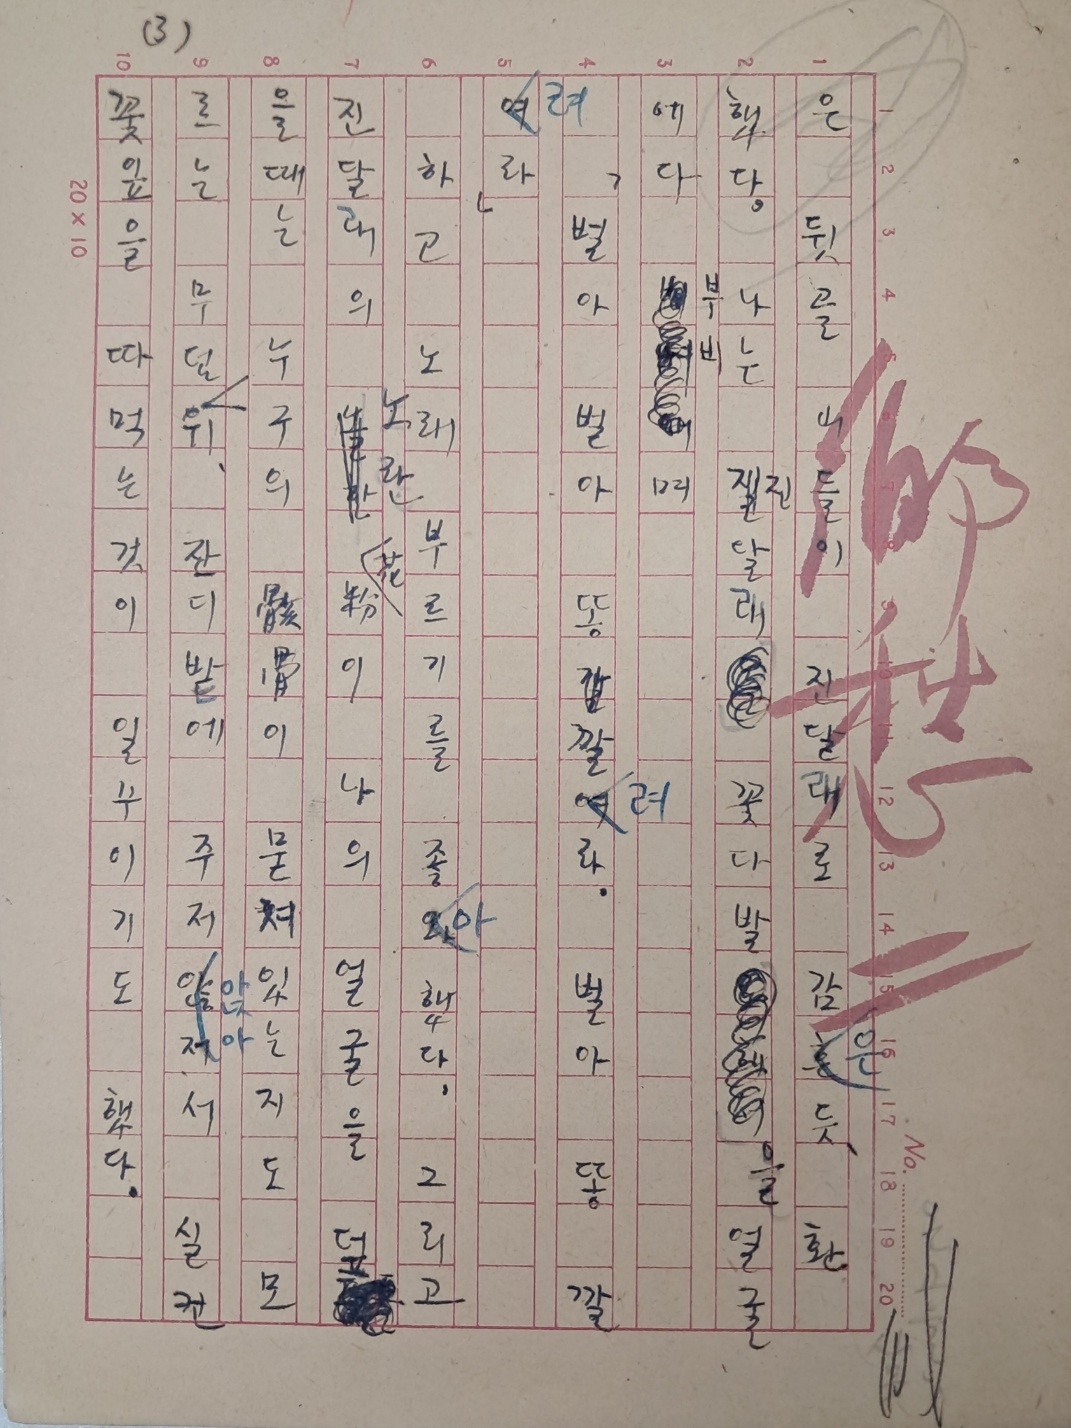 (3)
1 2 3 4 5 6 7 8 9 10
1 2 3 4 5 6 7 8 9 10 11 12 13 14 15 16 17 18 19 20
No.
20 × 10
은 뒷골 들이 진달래로 감은 듯, 환
했다. 나는 진달래 꽃다발을 얼굴
에다 부비며
, 벌아 벌아 똥깔려라. 벌아 똥깔
려라」
하고 노래 부르기를 좋아했다. 그리고
진달래의 노란 花粉이 나의 얼굴을 덮
을 때는 누구의 骸骨이 묻혀있는지도 모
르는 무덤 위, 잔디밭에 주저앉아서 실컨
꽃잎을 따먹는 것이 일쑤이기도 했다.